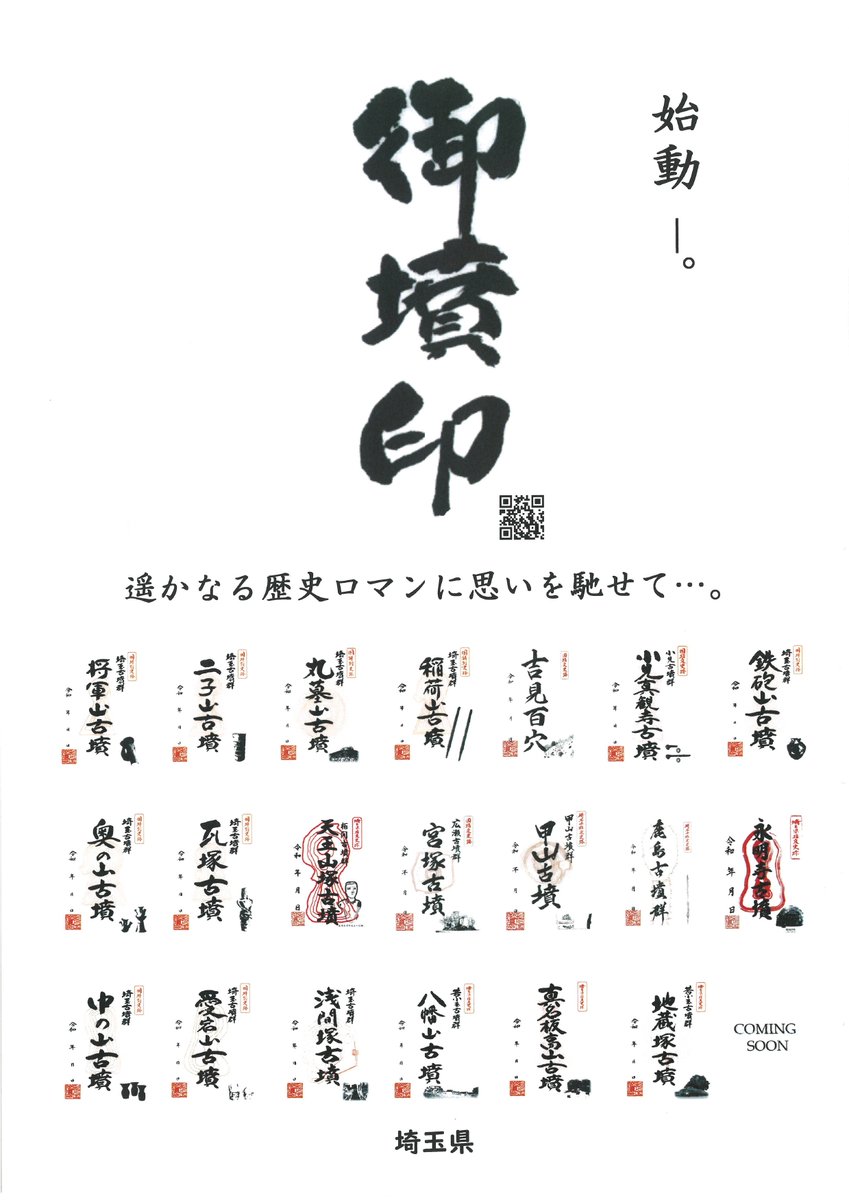 始動―。
御墳印
遥かなる歴史ロマンに思いを馳せて…。
埼玉古墳群
将軍山古墳
令和 年 月 日
埼玉古墳群
二子山古墳
令和 年 月 日
埼玉古墳群
丸墓山古墳
令和 年 月 日
埼玉古墳群
稲荷山古墳
令和 年 月 日
吉見百穴
令和 年 月 日
小見古墳群
小見真観寺古墳
令和 年 月 日
埼玉古墳群
鉄砲山古墳
令和 年 月 日
埼玉古墳群
奥の山古墳
令和 年 月 日
埼玉古墳群
瓦塚古墳
令和 年 月 日
天王山塚古墳
令和 年 月 日
広瀬古墳群
宮塚古墳
令和 年 月 日
甲山古墳群
甲山古墳
令和 年 月 日
鹿島古墳群
令和 年 月 日
永明寺古墳
令和 年 月 日
埼玉古墳群
中の山古墳
令和 年 月 日
埼玉古墳群
愛宕山古墳
令和 年 月 日
埼玉古墳群
浅間塚古墳
令和 年 月 日
若小玉古墳群
八幡山古墳
令和 年 月 日
真名板高山古墳
令和 年 月 日
若小玉古墳群
地蔵塚古墳
令和 年 月 日
COMING
SOON
埼玉県